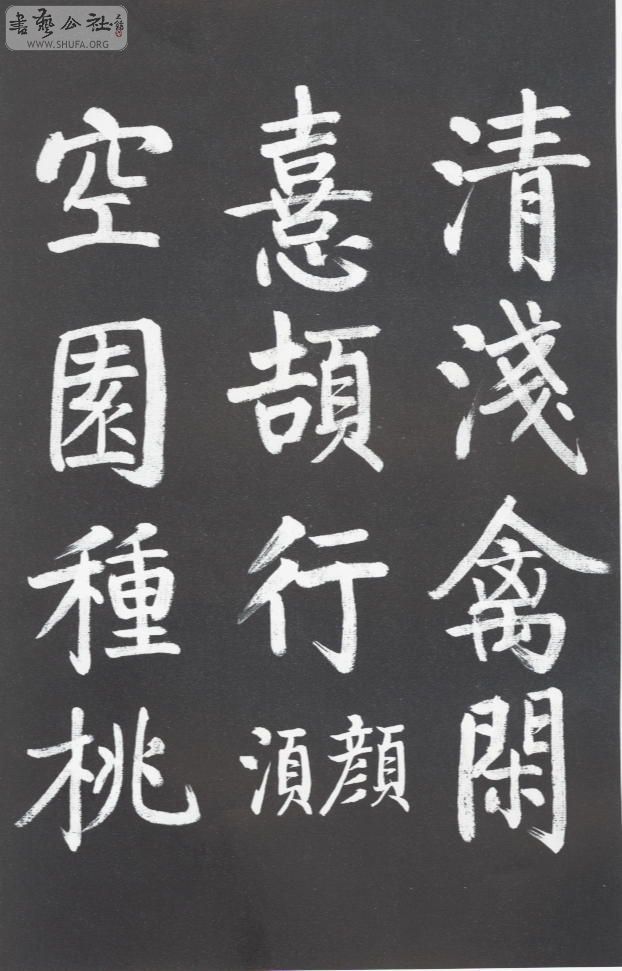 書藝公社
WWW.SHUFA.ORG
清淺禽閑
憙頡行顔湏
空園種桃